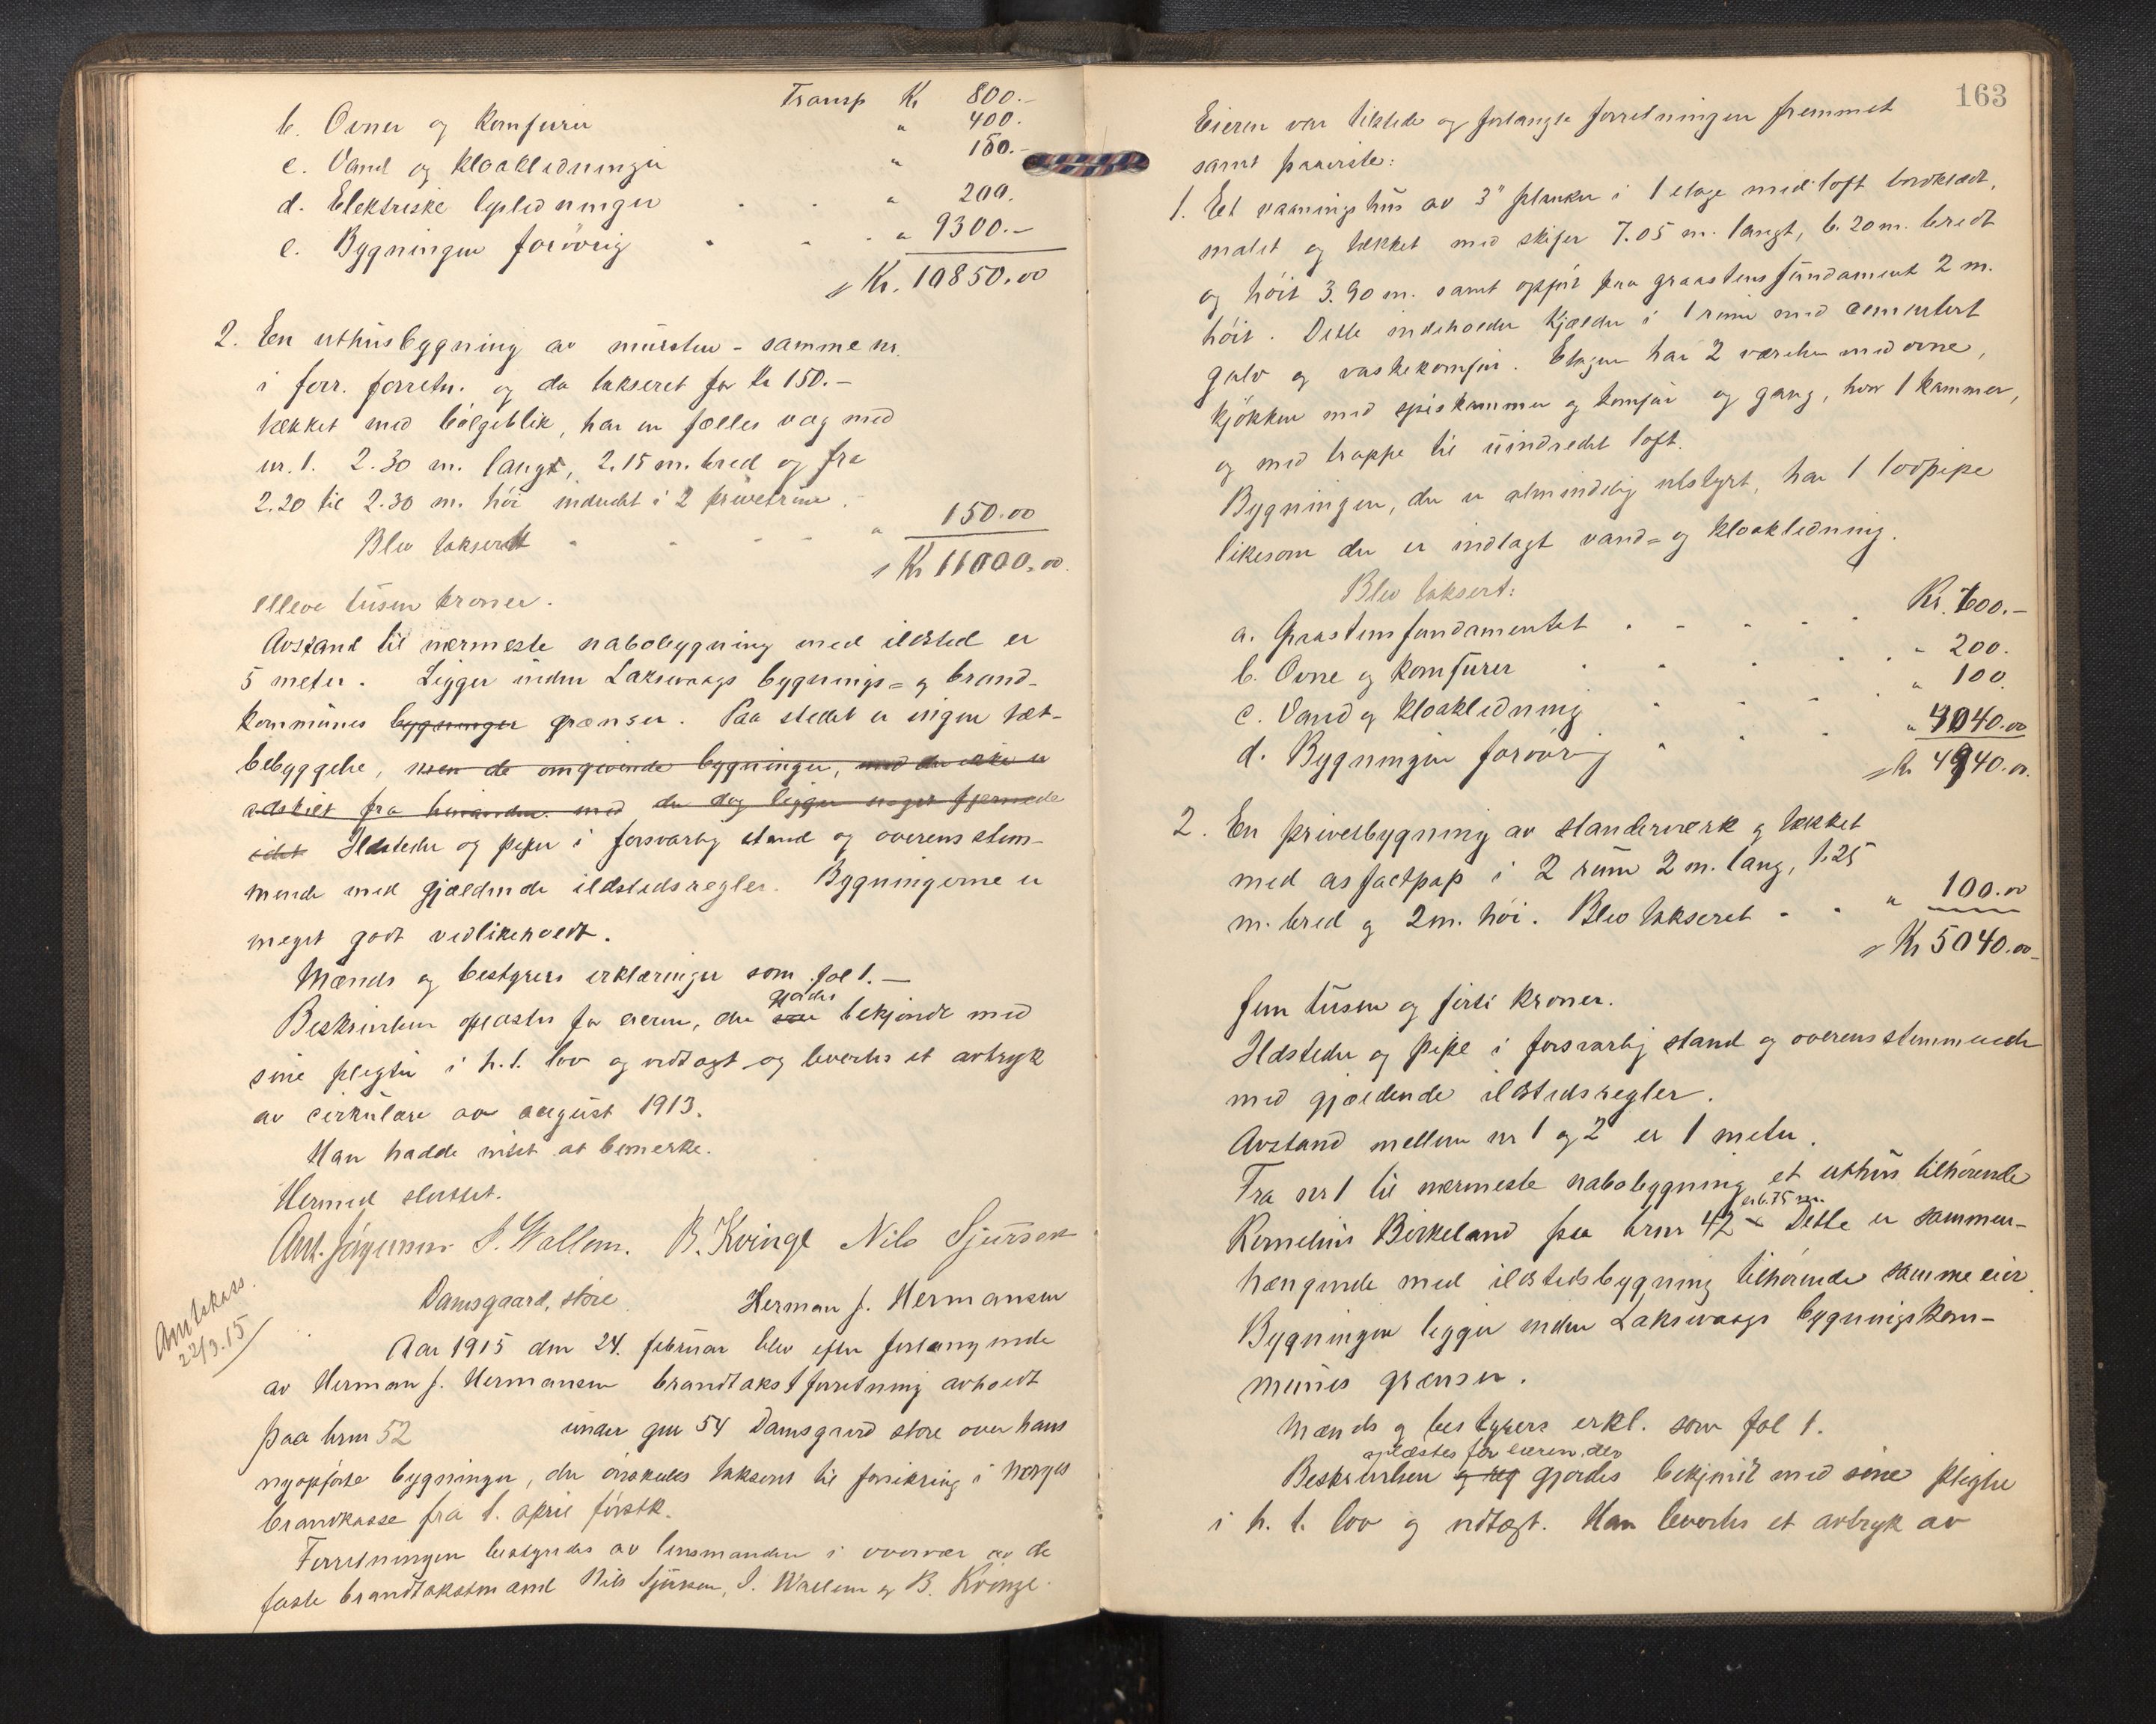 Transp Kr 800.-
b. Ovner og komfurer " 400.
c. Vand og kloakledninger " 150.-
d. Elektriske lysledninger " 200.
e. Bygningen forøvrig " 9300.-
Kr. 10850.00
2. En uthusbygning av mursten - samme nr.
i forr. forretn. og da takseret for kr 150.-
tækket med bølgeblik, har en fælles væg med
nr. 1. 2.30 m. langt, 2.15 m. bred og fra
2.20 til 2.30 m. høi inddelt i 2 privetrum.
Blev takseret " 150.00
Kr 11000.00.
elleve tusen kroner.
Avstand til nærmeste nabobygning med ildsted er
5 meter. Ligger inden Laksevaags bygnings= og brand-
kommunes bygninger grænser. Paa stedet er ingen tæt-
bebyggelse, men de omgivende bygninger, med der ikke er
adskilt fra hinanden med der dog ligger noget fjernede
Ildsteder og piper i forsvarlig stand og overensstem-
mende med gjældende ildstedsregler. Bygningerne er
meget godt vedlikeholdt.
Mænds og bestyrers erklæringer som fol 1.-
gjordes
Beskrivelsen oplæstes for eieren, der bekjendt med
sine pligter i h. t. lov og vedtægt og levertes et avtryk
av cirkulære av august 1913.
Han hadde intet at bemerke.
Hermed sluttet.
J. Wallem. B. Kvinge Nils Sjursen
Amtskass.
22/3.15
Damsgaard, store. Herman J. Hermansen
Aar 1915 den 24. februar blev efter forlangende
av Herman J. Hermansen brandtakstforretning avholdt
paa brnr 52 under gnr 54 Damsgaard store over hans
nyopførte bygninger, der ønskedes takseret til forsikring i Norges
brandkasse fra 1. april førstk.
Forretningen bestyredes av lensmanden i overvær av de
faste brandtakstmænd Nils Sjursen, J. Wallem og B. Kvinge.
163
Eieren var tilstede og forlangte forretningen fremmet
samt paaviste:
1. Et vaaningshus av 3" planker i 1 etage med loft bordklædt,
malet og tækket med skifer 7.05 m. langt, 6.20 m. bredt
og høit 3.90 m. samt opført paa graastensfundament 2 m.
høit. Dette indeholder kjælder i 1 rum med cementert
gulv og vaskekomfur. Etagen har 2 værelser med ovne,
kjøkken med spiskammer og komfur og gang, hvor 1 kammer,
og med trappe til uindredet loft.
Bygningen, der er almindelig utstyrt, har 1 lodpipe
likesom der er indlagt vand= og kloakledning.
Blev taksert:
a. Graastensfundamentet Kr. 600.-
b. Ovne og komfurer " 200.
c. Vand og kloakledning " 100.
d. Bygningen forøvrig " 4040.00
Kr 4940.00.
2. En privetbygning av standerverk og tækket
med asfaltpap i 2 rum 2 m. lang, 1.25
m. bred og 2 m. høi. Blev takseret " 100.00
Kr 5040.00
fem tusen og firti kroner.
Ildsteder og pipe i forsvarlig stand og overensstemmende
med gjældende ildstedsregler.
Avstand mellem nr 1 og 2 er 1 meter.
Fra nr 1 til nærmeste nabobygning et uthus tilhørende
er 6.75 m.
Kornelius Birkeland paa brnr 42 x Dette er sammen-
hængende med ildstedsbygning tilhørende samme eier.
Bygningen ligger inden Laksevaags bygningskom-
munes grænser.
Mænds og bestyrers erkl. som fol 1.
oplæstes for eieren, der
Beskrivelsen gjordes bekjendt med sine pligter
i h. t. lov og vedtægt. Han levertes et avtryk av